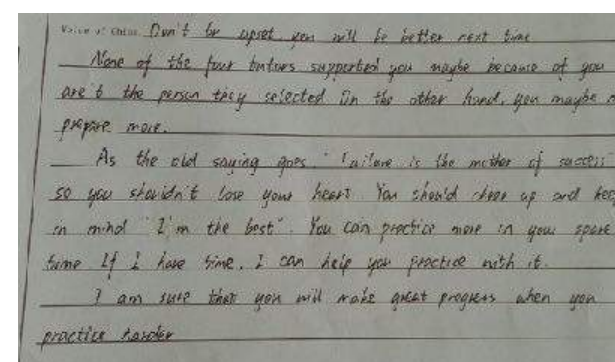 Voice of China. Don't be upset you will be better next time
None of the four tutors supported you maybe because of you
are't the person they selected On the other hand, you maybe
prepare more.
As the old saying goes, "Failure is the mother of success"
so you shouldn't lose your heart You should cheer up and keep
in mind "I'm the best". You can practice more in your spare
time If I have time, I can help you practice with it.
I am sure that you will make great progress when you
practice harder